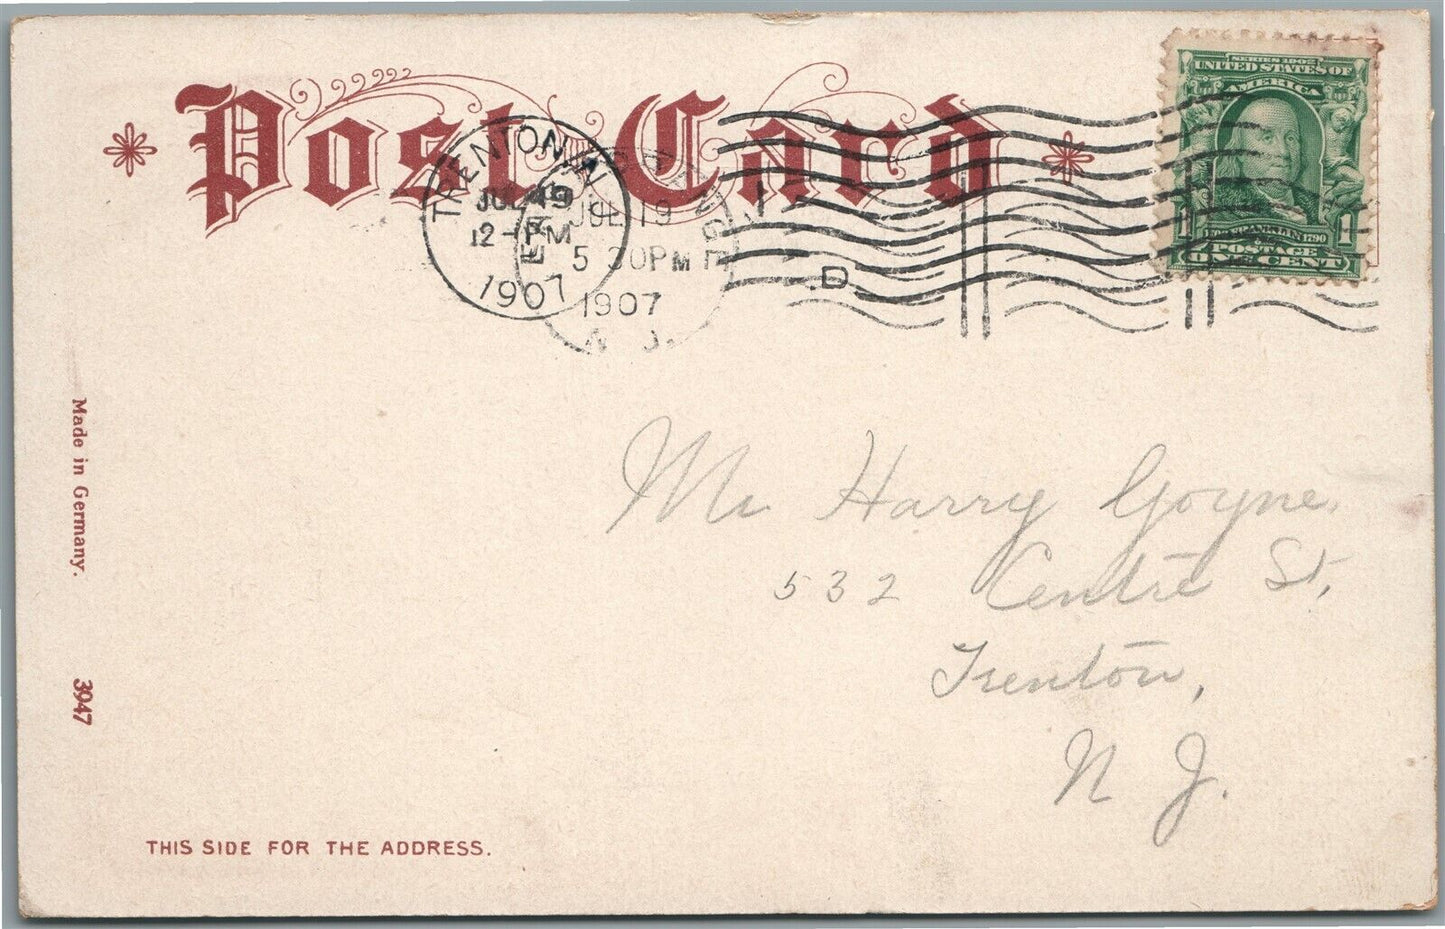 Post Card
SERIES 1902
UNITED STATES OF
AMERICA
1 FRANKLIN 1790 1
POSTAGE
ONE CENT
TRENTON, N.
JUL 19
12-PM
1907
JUL 19
5 30PM
1907
N. J.
D
Made in Germany.
3947
Mr. Harry Goyne.
532 Centre St,
Trenton,
N J.
THIS SIDE FOR THE ADDRESS.